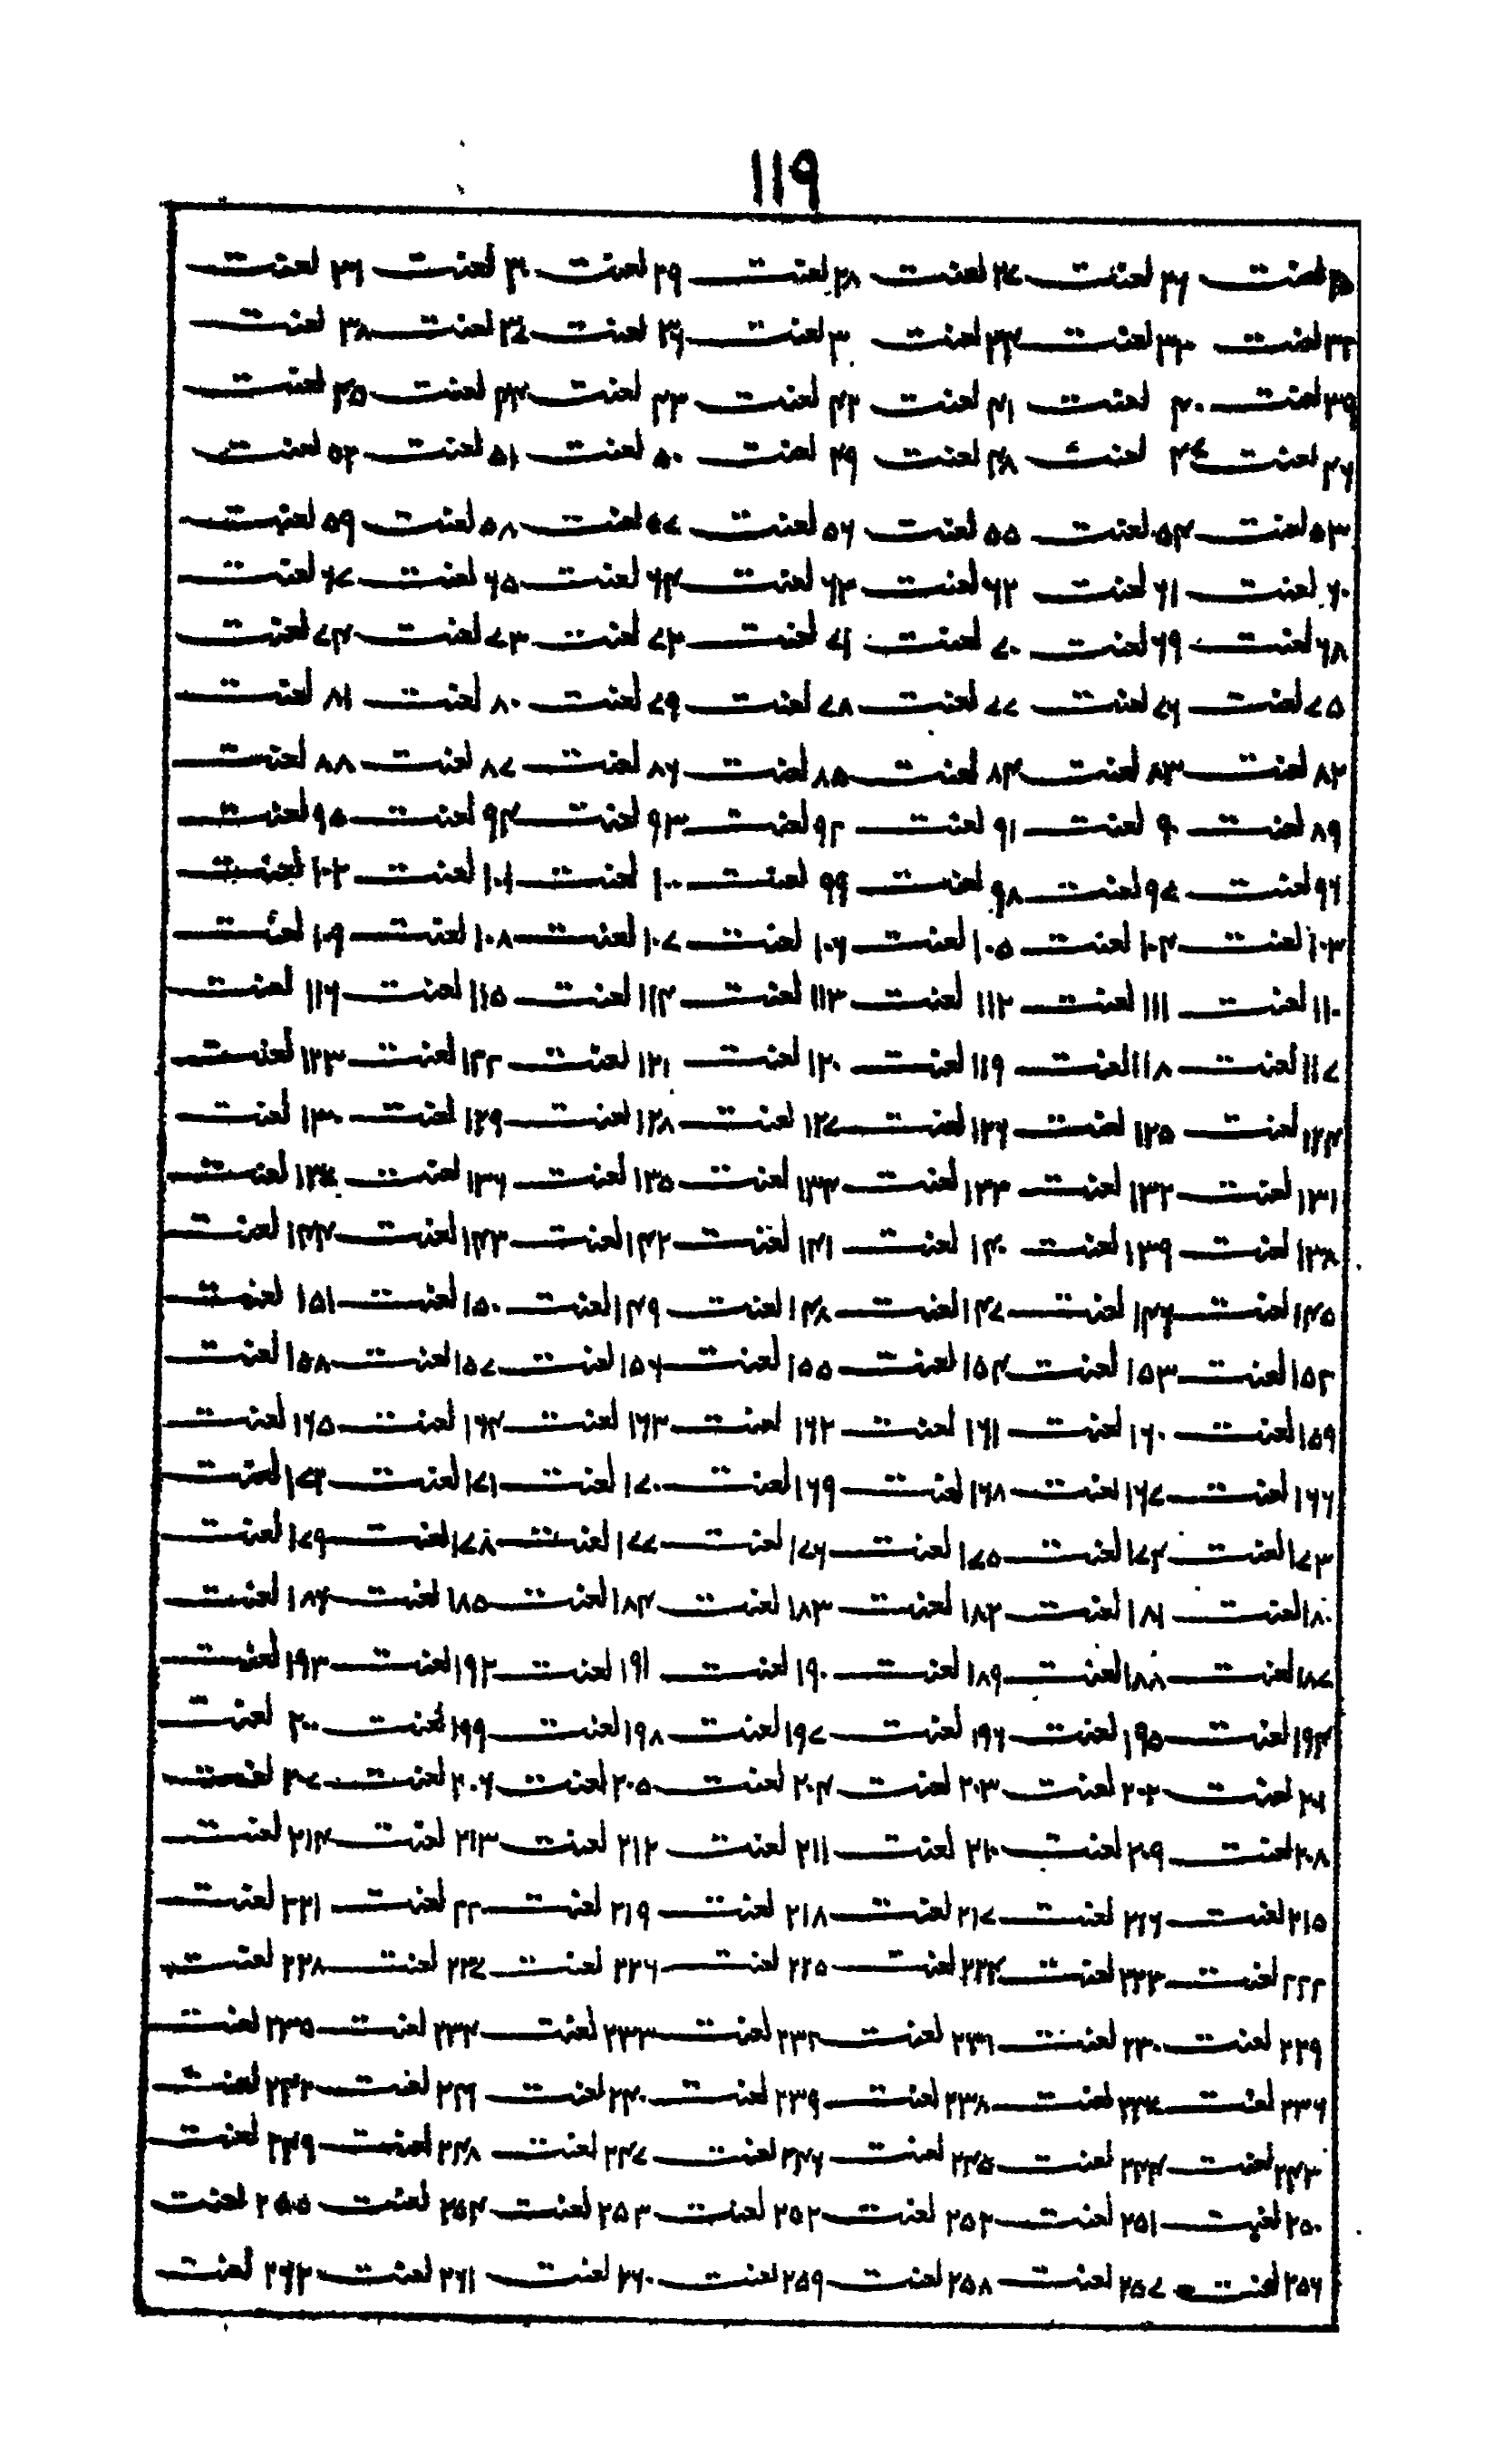 ۱۱۹
۲۵ لعنت ۲۶ لعنت ۲۷ لعنت ۲۸ لعنت ۲۹ لعنت ۳۰ لعنت ۳۱ لعنت
۳۲ لعنت ۳۳ لعنت ۳۴ لعنت ۳ لعنت ۳۶ لعنت ۳۷ لعنت ۳۸ لعنت
۳۹ لعنت ۴۰ لعنت ۴۱ لعنت ۴۲ لعنت ۴۳ لعنت ۴۴ لعنت ۴۵ لعنت
۴۶ لعنت ۴۷ لعنت ۴۸ لعنت ۴۹ لعنت ۵۰ لعنت ۵۱ لعنت ۵۲ لعنت
۵۳ لعنت ۵۴ لعنت ۵۵ لعنت ۵۶ لعنت ۵۷ لعنت ۵۸ لعنت ۵۹ لعنت
۶۰ لعنت ۶۱ لعنت ۶۲ لعنت ۶۳ لعنت ۶۴ لعنت ۶۵ لعنت ۶۷ لعنت
۶۸ لعنت ۶۹ لعنت ۷۰ لعنت ۷۱ لعنت ۷۲ لعنت ۷۳ لعنت ۷۴ لعنت
۷۵ لعنت ۷۶ لعنت ۷۷ لعنت ۷۸ لعنت ۷۹ لعنت ۸۰ لعنت ۸۱ لعنت
۸۲ لعنت ۸۳ لعنت ۸۴ لعنت ۸۵ لعنت ۸۶ لعنت ۸۷ لعنت ۸۸ لعنت
۸۹ لعنت ۹۰ لعنت ۹۱ لعنت ۹۲ لعنت ۹۳ لعنت ۹۴ لعنت ۹۵ لعنت
۹۶ لعنت ۹۷ لعنت ۹۸ لعنت ۹۹ لعنت ۱۰۰ لعنت ۱۰۱ لعنت ۱۰۲ لعنت
۱۰۳ لعنت ۱۰۴ لعنت ۱۰۵ لعنت ۱۰۶ لعنت ۱۰۷ لعنت ۱۰۸ لعنت ۱۰۹ لعنت
۱۱۰ لعنت ۱۱۱ لعنت ۱۱۲ لعنت ۱۱۳ لعنت ۱۱۴ لعنت ۱۱۵ لعنت ۱۱۶ لعنت
۱۱۷ لعنت ۱۱۸ لعنت ۱۱۹ لعنت ۱۲۰ لعنت ۱۲۱ لعنت ۱۲۲ لعنت ۱۲۳ لعنت
۱۲۴ لعنت ۱۲۵ لعنت ۱۲۶ لعنت ۱۲۷ لعنت ۱۲۸ لعنت ۱۲۹ لعنت ۱۳۰ لعنت
۱۳۱ لعنت ۱۳۲ لعنت ۱۳۳ لعنت ۱۳۴ لعنت ۱۳۵ لعنت ۱۳۶ لعنت ۱۳۷ لعنت
۱۳۸ لعنت ۱۳۹ لعنت ۱۴۰ لعنت ۱۴۱ لعنت ۱۴۲ لعنت ۱۴۳ لعنت ۱۴۴ لعنت
۱۴۵ لعنت ۱۴۶ لعنت ۱۴۷ لعنت ۱۴۸ لعنت ۱۴۹ لعنت ۱۵۰ لعنت ۱۵۱ لعنت
۱۵۲ لعنت ۱۵۳ لعنت ۱۵۴ لعنت ۱۵۵ لعنت ۱۵۶ لعنت ۱۵۷ لعنت ۱۵۸ لعنت
۱۵۹ لعنت ۱۶۰ لعنت ۱۶۱ لعنت ۱۶۲ لعنت ۱۶۳ لعنت ۱۶۴ لعنت ۱۶۵ لعنت
۱۶۶ لعنت ۱۶۷ لعنت ۱۶۸ لعنت ۱۶۹ لعنت ۱۷۰ لعنت ۱۷۱ لعنت ۱۷۲ لعنت
۱۷۳ لعنت ۱۷۴ لعنت ۱۷۵ لعنت ۱۷۶ لعنت ۱۷۷ لعنت ۱۷۸ لعنت ۱۷۹ لعنت
۱۸۰ لعنت ۱۸۱ لعنت ۱۸۲ لعنت ۱۸۳ لعنت ۱۸۴ لعنت ۱۸۵ لعنت ۱۸۶ لعنت
۱۸۷ لعنت ۱۸۸ لعنت ۱۸۹ لعنت ۱۹۰ لعنت ۱۹۱ لعنت ۱۹۲ لعنت ۱۹۳ لعنت
۱۹۴ لعنت ۱۹۵ لعنت ۱۹۶ لعنت ۱۹۷ لعنت ۱۹۸ لعنت ۱۹۹ لعنت ۲۰۰ لعنت
۲۰۱ لعنت ۲۰۲ لعنت ۲۰۳ لعنت ۲۰۴ لعنت ۲۰۵ لعنت ۲۰۶ لعنت ۲۰۷ لعنت
۲۰۸ لعنت ۲۰۹ لعنت ۲۱۰ لعنت ۲۱۱ لعنت ۲۱۲ لعنت ۲۱۳ لعنت ۲۱۴ لعنت
۲۱۵ لعنت ۲۱۶ لعنت ۲۱۷ لعنت ۲۱۸ لعنت ۲۱۹ لعنت ۲۲ لعنت ۲۲۱ لعنت
۲۲۲ لعنت ۲۲۳ لعنت ۲۲۴ لعنت ۲۲۵ لعنت ۲۲۶ لعنت ۲۲۷ لعنت ۲۲۸ لعنت
۲۲۹ لعنت ۲۳۰ لعنت ۲۳۱ لعنت ۲۳۲ لعنت ۲۳۳ لعنت ۲۳۴ لعنت ۲۳۵ لعنت
۲۳۶ لعنت ۲۳۷ لعنت ۲۳۸ لعنت ۲۳۹ لعنت ۲۴۰ لعنت ۲۴۱ لعنت ۲۴۲ لعنت
۲۴۳ لعنت ۲۴۴ لعنت ۲۴۵ لعنت ۲۴۶ لعنت ۲۴۷ لعنت ۲۴۸ لعنت ۲۴۹ لعنت
۲۵۰ لعنت ۲۵۱ لعنت ۲۵۲ لعنت ۲۵۲ لعنت ۲۵۳ لعنت ۲۵۴ لعنت ۲۵۵ لعنت
۲۵۶ لعنت ۲۵۷ لعنت ۲۵۸ لعنت ۲۵۹ لعنت ۲۶۰ لعنت ۲۶۱ لعنت ۲۶۲ لعنت